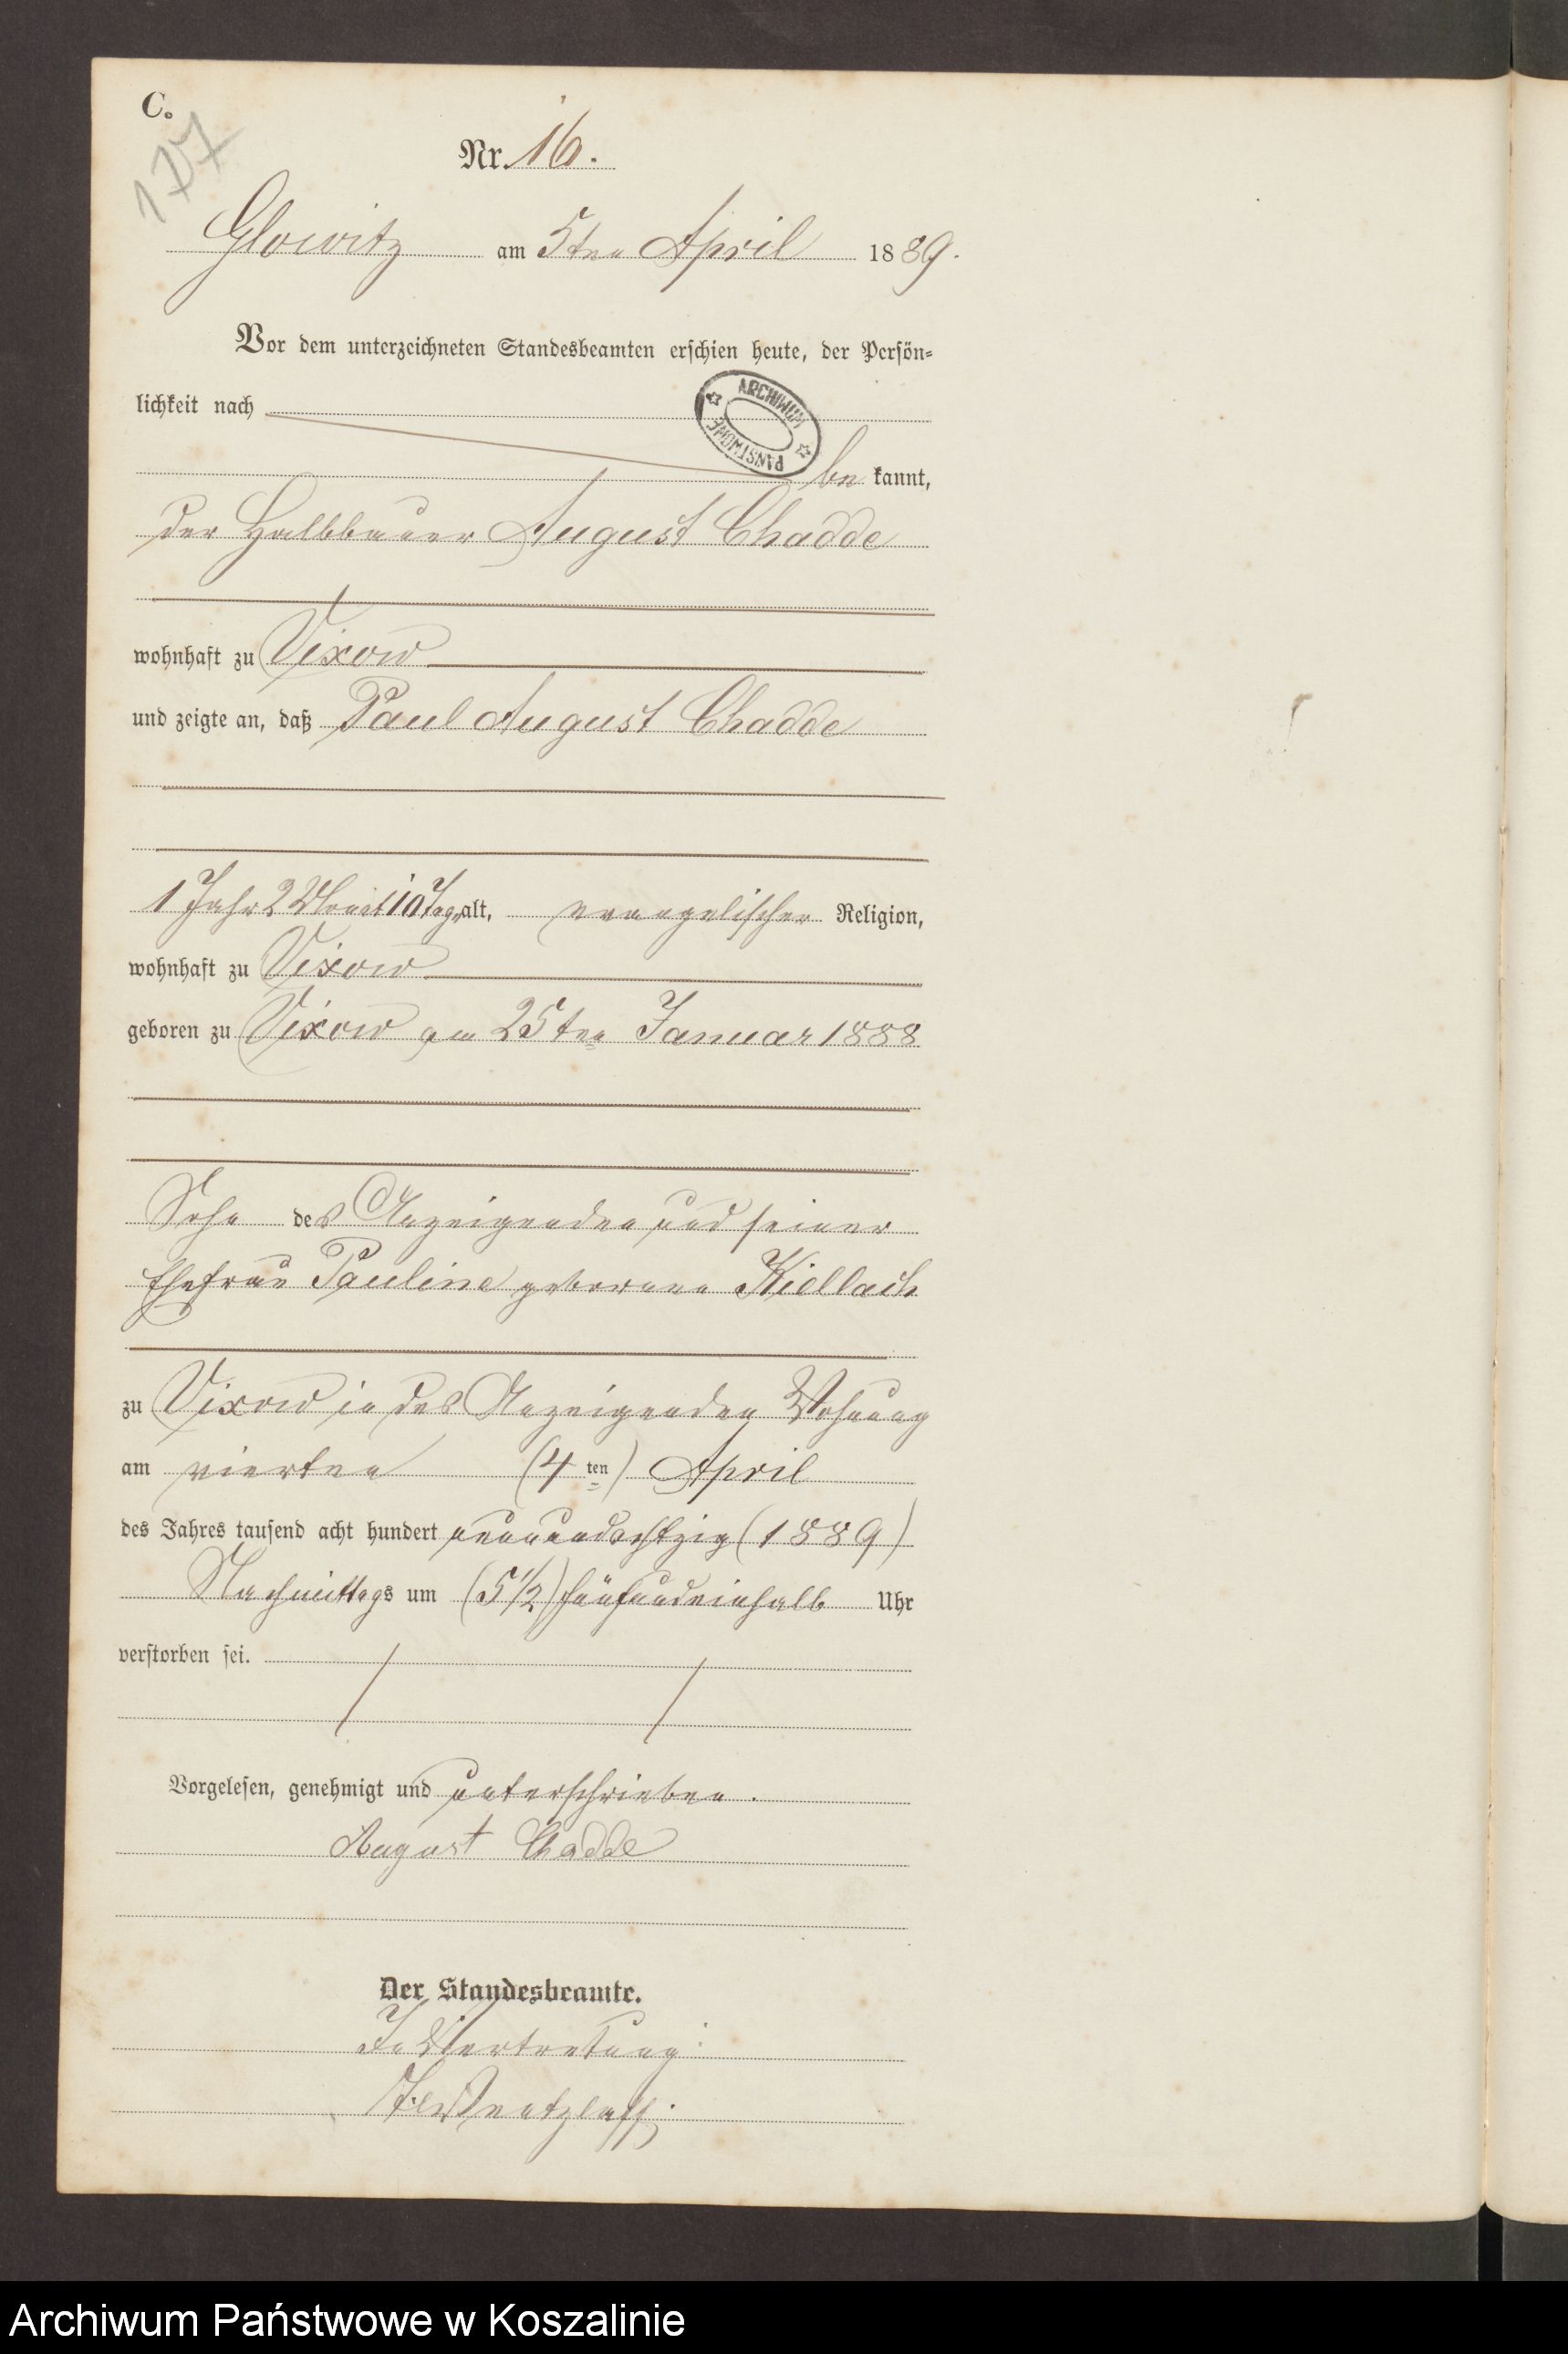 C.
127
Nr. 16.
Glowitz am 5ten April 1889.
Vor dem unterzeichneten Standesbeamten erschien heute, der Persön-
lichkeit nach
ARCHIWUM PAŃSTWOWE
be kannt,
der Halbbauer August Chadde
wohnhaft zu Vixow
und zeigte an, daß Paul August Chadde
1 Jahr 2 Monat 10 Tage alt, evangelischer Religion,
wohnhaft zu Vixow
geboren zu Vixow am 25ten Januar 1888
Sohn des Anzeigenden und seiner
Ehefrau Pauline geborene Kiellach
zu Vixow in des Anzeigenden Wohnung
am vierten (4ten) April
des Jahres tausend acht hundert neunundachtzig (1889)
Nachmittags um (5 1/2) fünfundeinhalb Uhr
verstorben sei.
Vorgelesen, genehmigt und unterschrieben.
August Chadde
Der Standesbeamte.
In Vertretung:
Archiwum Państwowe w Koszalinie